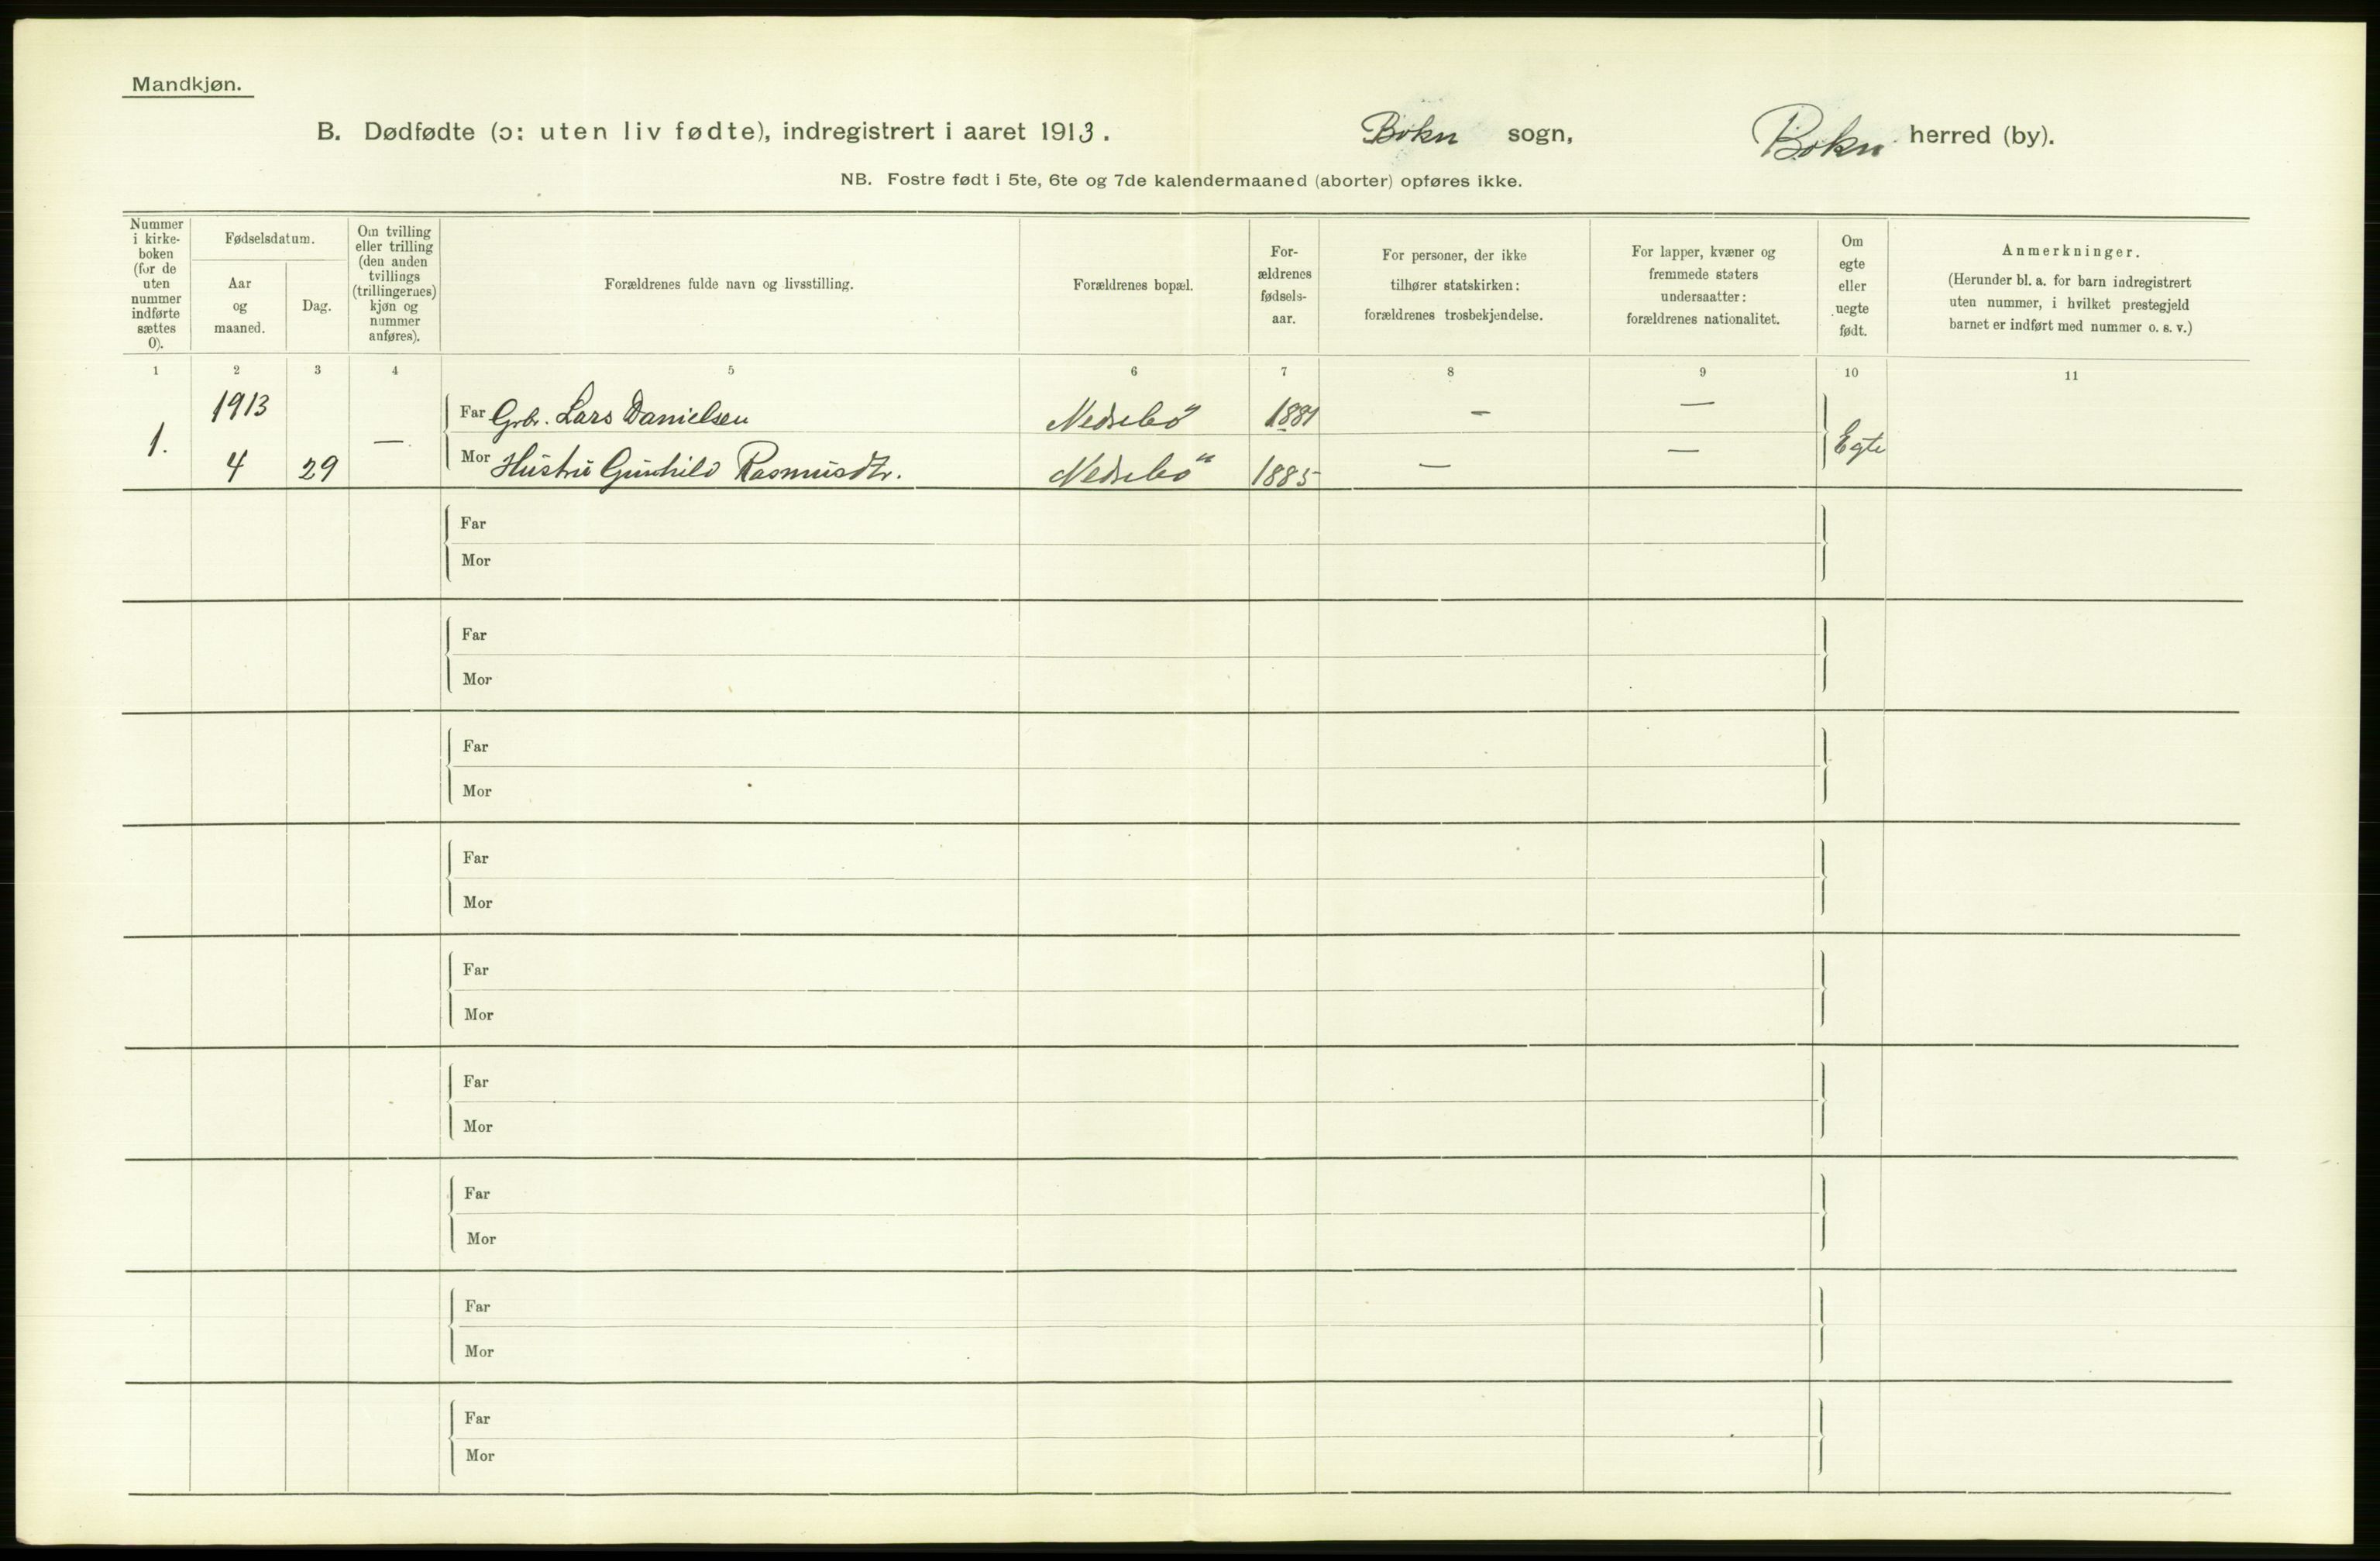 Mandkjøn.
B. Dødfødte (ɔ: uten liv fødte), indregistrert i aaret 1913. Bokn sogn, Bokn herred (by).
NB. Fostre født i 5te, 6te og 7de kalendermaaned (aborter) opføres ikke.
Nummer
i kirke-
boken
(for de
uten
nummer
indførte
sættes
0).
Fødselsdatum.
Aar
og
maaned.
Dag.
Om tvilling
eller trilling
(den anden
tvillings
(trillingernes)
kjøn og
nummer
anføres).
Forældrenes fulde navn og livsstilling.
Forældrenes bopæl.
For-
ældrenes
fødsels-
aar.
For personer, der ikke
tilhører statskirken:
forældrenes trosbekjendelse.
For lapper, kvæner og
fremmede staters
undersaatter:
forældrenes nationalitet.
Om
egte
eller
uegte
født.
Anmerkninger.
(Herunder bl. a. for barn indregistrert
uten nummer, i hvilket prestegjeld
barnet er indført med nummer o. s. v.)
1 2 3 4 5 6 7 8 9 10 11
1913
Far Grbr. Lars Danielsen Nedrebö 1881 - —
1. — Egte
4 29 Mor Hustru Gunhild Rasmusdtr. Nedrebö 1885 — —
Far
Mor
Far
Mor
Far
Mor
Far
Mor
Far
Mor
Far
Mor
Far
Mor
Far
Mor
Far
Mor